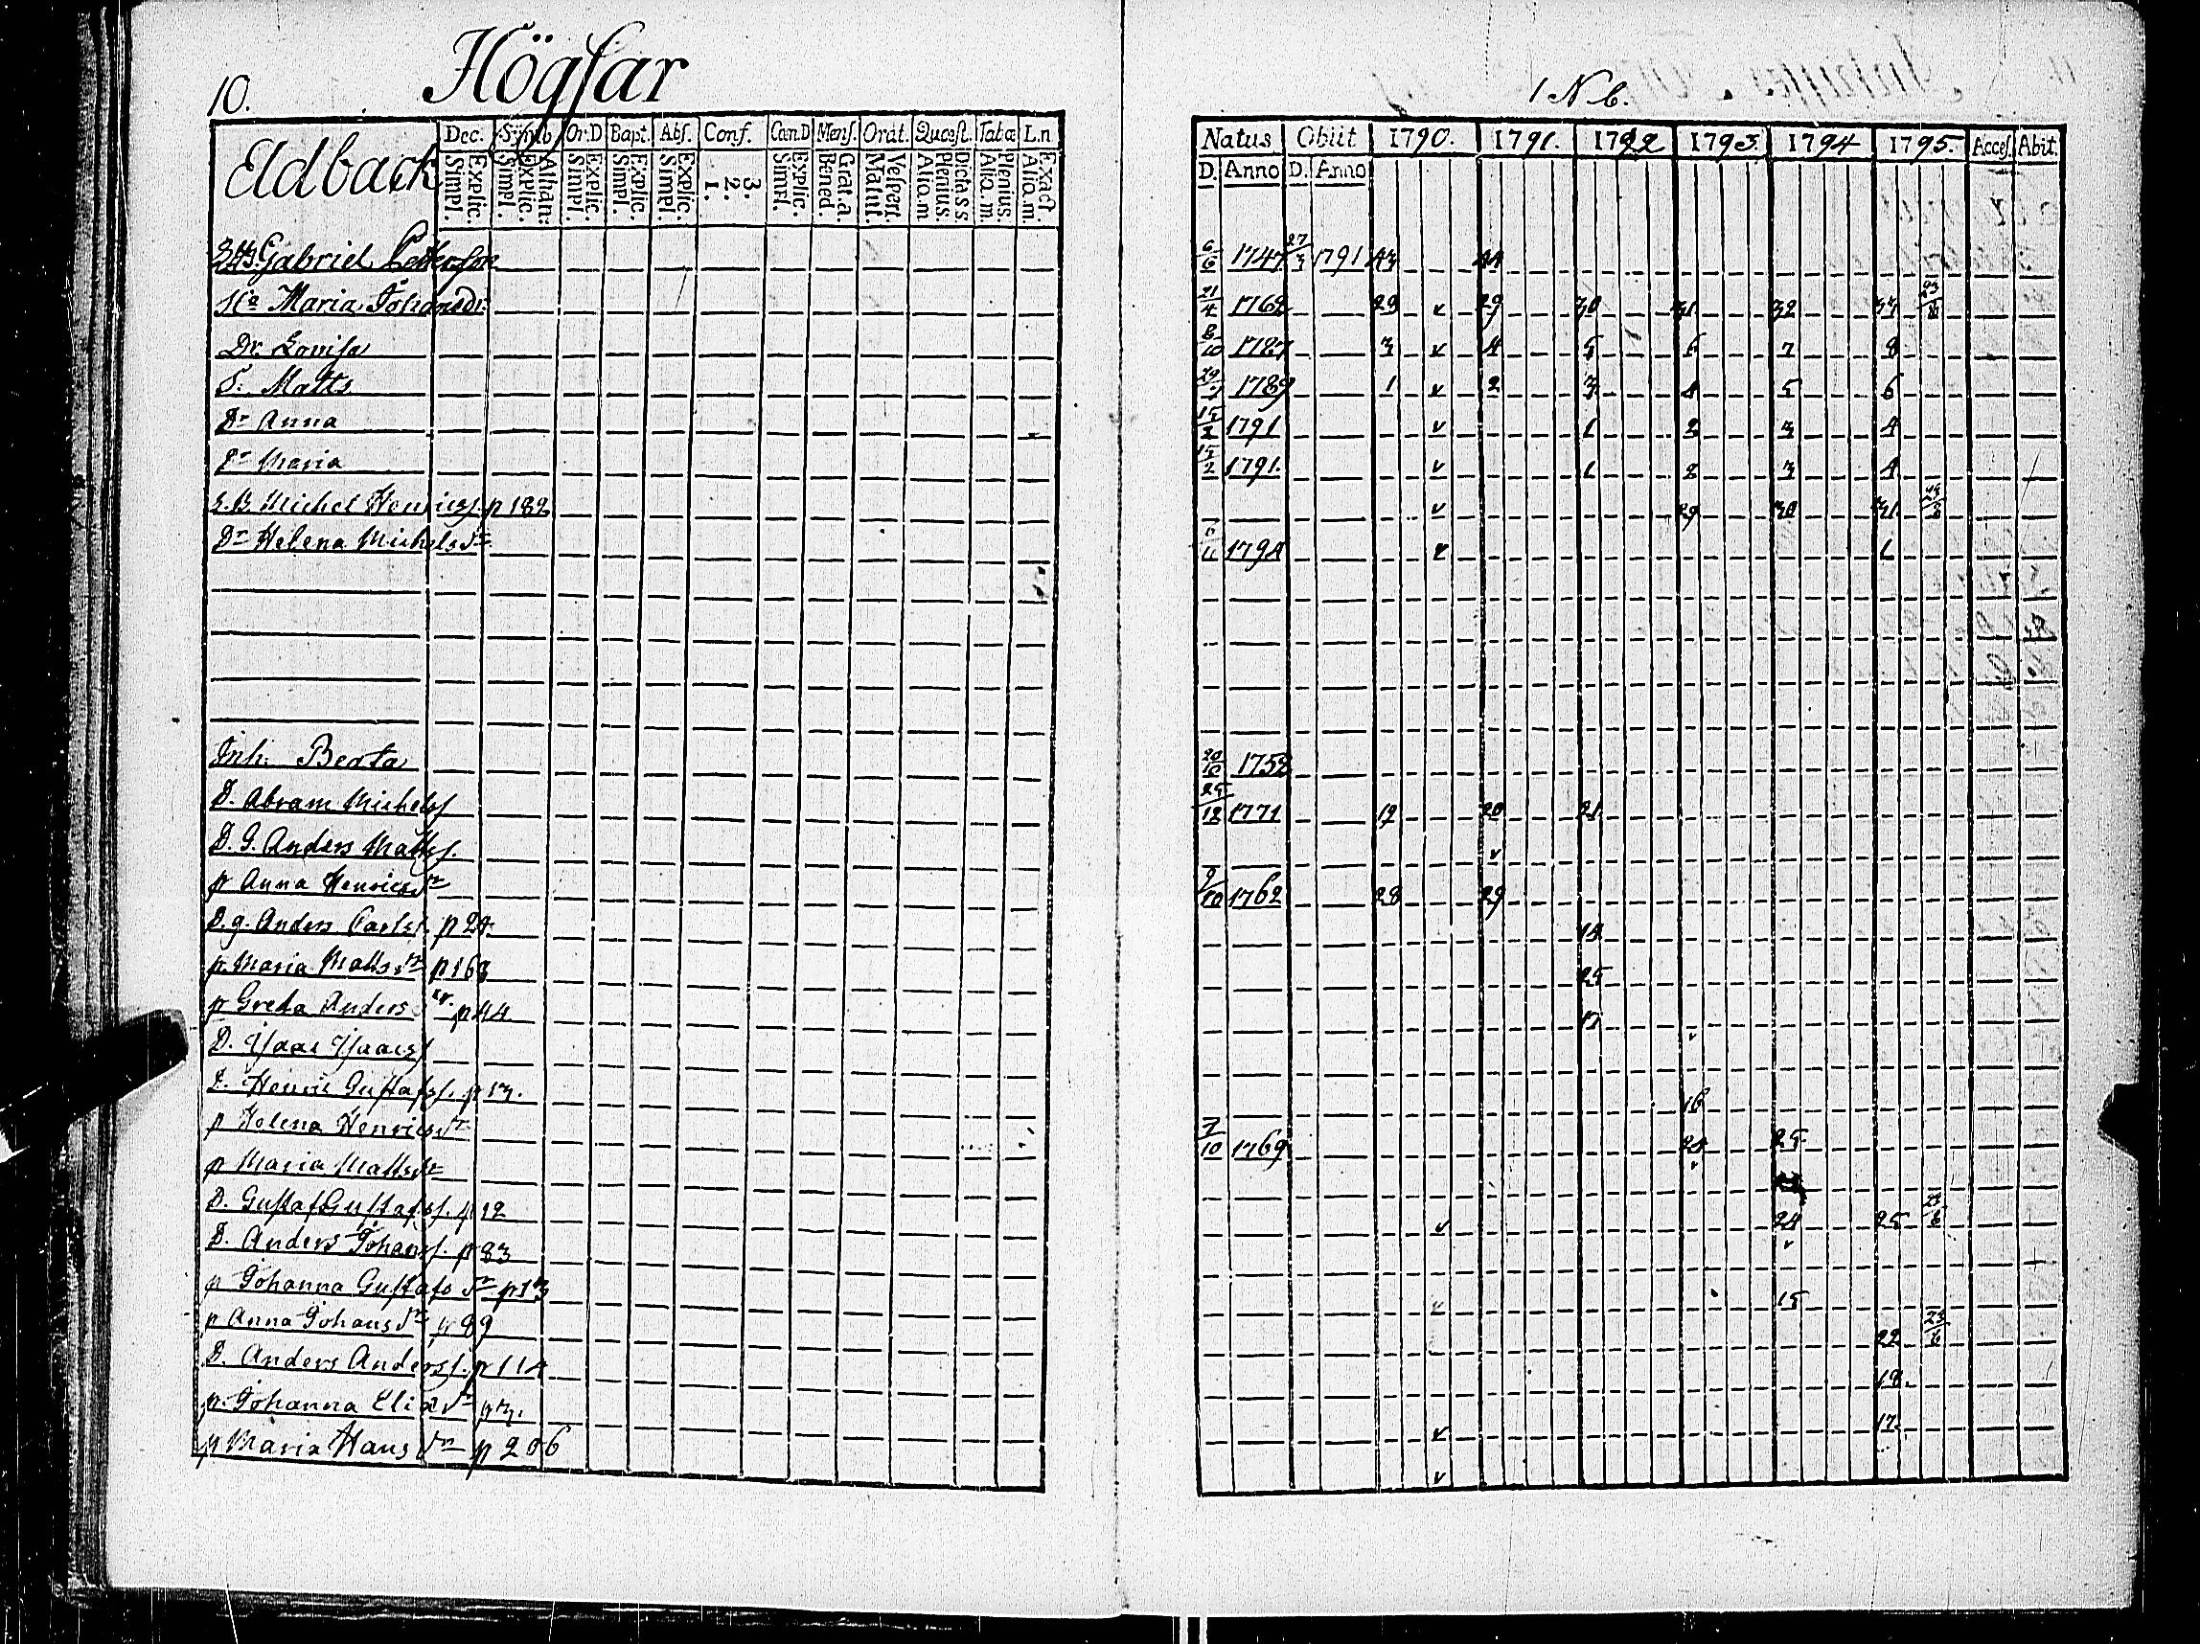 10. Högsar
1 N 6.
Eldback Dec. Symb. Or.D Bapt. Abs. Conf. Can.D Mens. Orat. Quæst. Tabæ L.n
Simpl. Explic. Simpl. Explic. Athan: Simpl. Explic Simpl. Explic. Simpl. Explic. 1. 2. 3. Simpl. Explic. Bened. Grat.a. Matut. Vespert. Aliq.m Plenius. Dicta s s. Aliq.m. Plenius. Aliq.m. Exact.
Natus Obiit 1790. 1791. 1792 1793. 1794 1795. Acces. Abit.
D. Anno D. Anno
Gabriel Petterson 6/6 1747 27/3 1791 43 44
Ha Maria Johansdr. 21/4 1762 29 v 29 30 31 32 33 23/6
Dr. Lovisa 8/10 1787 3 v 4 5 6 7 8
S. Matts 1789 1 v 2 3 4 5 6
Dr Anna 15/2 1791 v 1 2 3 4
Dr Maria 15/2 1791. v 1 2 3 4
S.B. Michel Henricss. p 182 v 29 30 31 23/6
Dr Helena Michelsdr 6/11 1794 v 1
Inh. Beata 20/12 1752
D. Abram Michelss 25/12 1771 19 20 21
D. G. Anders Matts s. v
p Anna Henricsdr 9/10 1762 28 29
D. g. Anders Carlss. p 24 14
p. Maria Mattsdr p 163 25
p Greta Anders dr. p 44 17
D. Isaac Isaacss v
D. Henric Gustafss. p 13. 16
p Helena Henricsdr 7/10 1769 24 25
p Maria Mattsdr v
D. Gustaf Gustafss. p 12 v 24 25 23/6
D. Anders Johanss. p 83 v
p Johanna Gustafs dr p 13 v 15
p Anna Johansdr p 89 22 23/6
D. Anders Anderss. p 114 18.
p. Johanna Eliædr v 17
p Maria Hans dr p 206 v